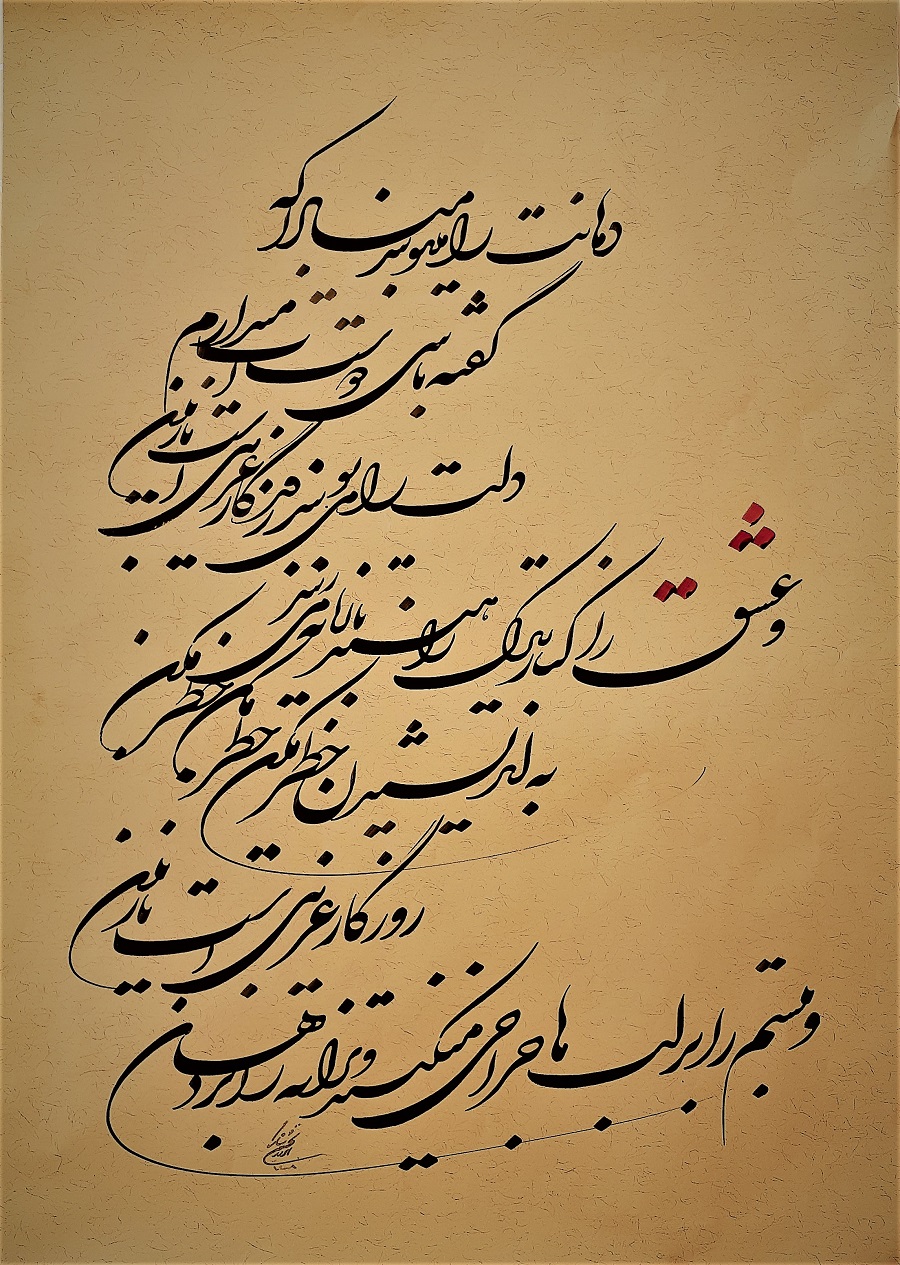 دهانت را میبویند مبادا که
گفته باشی دوستت میدارم
دلت را می بویند روزگار غریبی است نازنین
و عشق را کنار تیرک راهبند تازیانه می زنند
به اندیشیدن خطر مکن خطر مکن خطر مکن
روزگار غریبی است نازنین
و تبسم را بر لب ها جراحی میکنند و ترانه را بر دهان